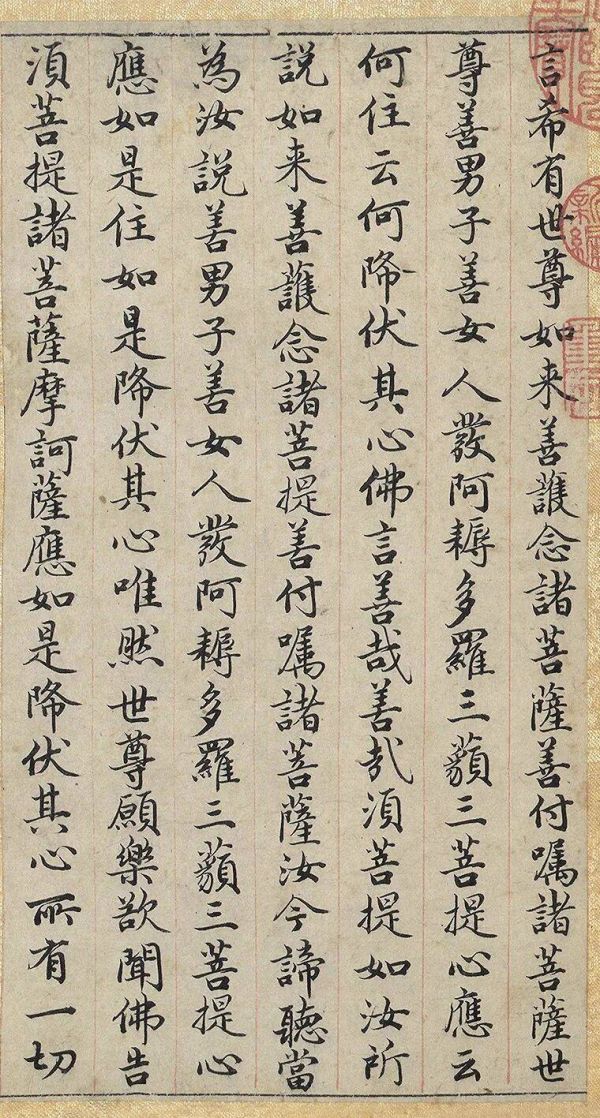 言希有世尊如来善護念諸菩薩善付囑諸菩薩世
尊善男子善女人發阿耨多羅三藐三菩提心應云
何住云何降伏其心佛言善哉善哉須菩提如汝所
說如来善護念諸菩提善付囑諸菩薩汝今諦聽當
為汝說善男子善女人發阿耨多羅三藐三菩提心
應如是住如是降伏其心唯然世尊願樂欲聞佛告
須菩提諸菩薩摩訶薩應如是降伏其心所有一切